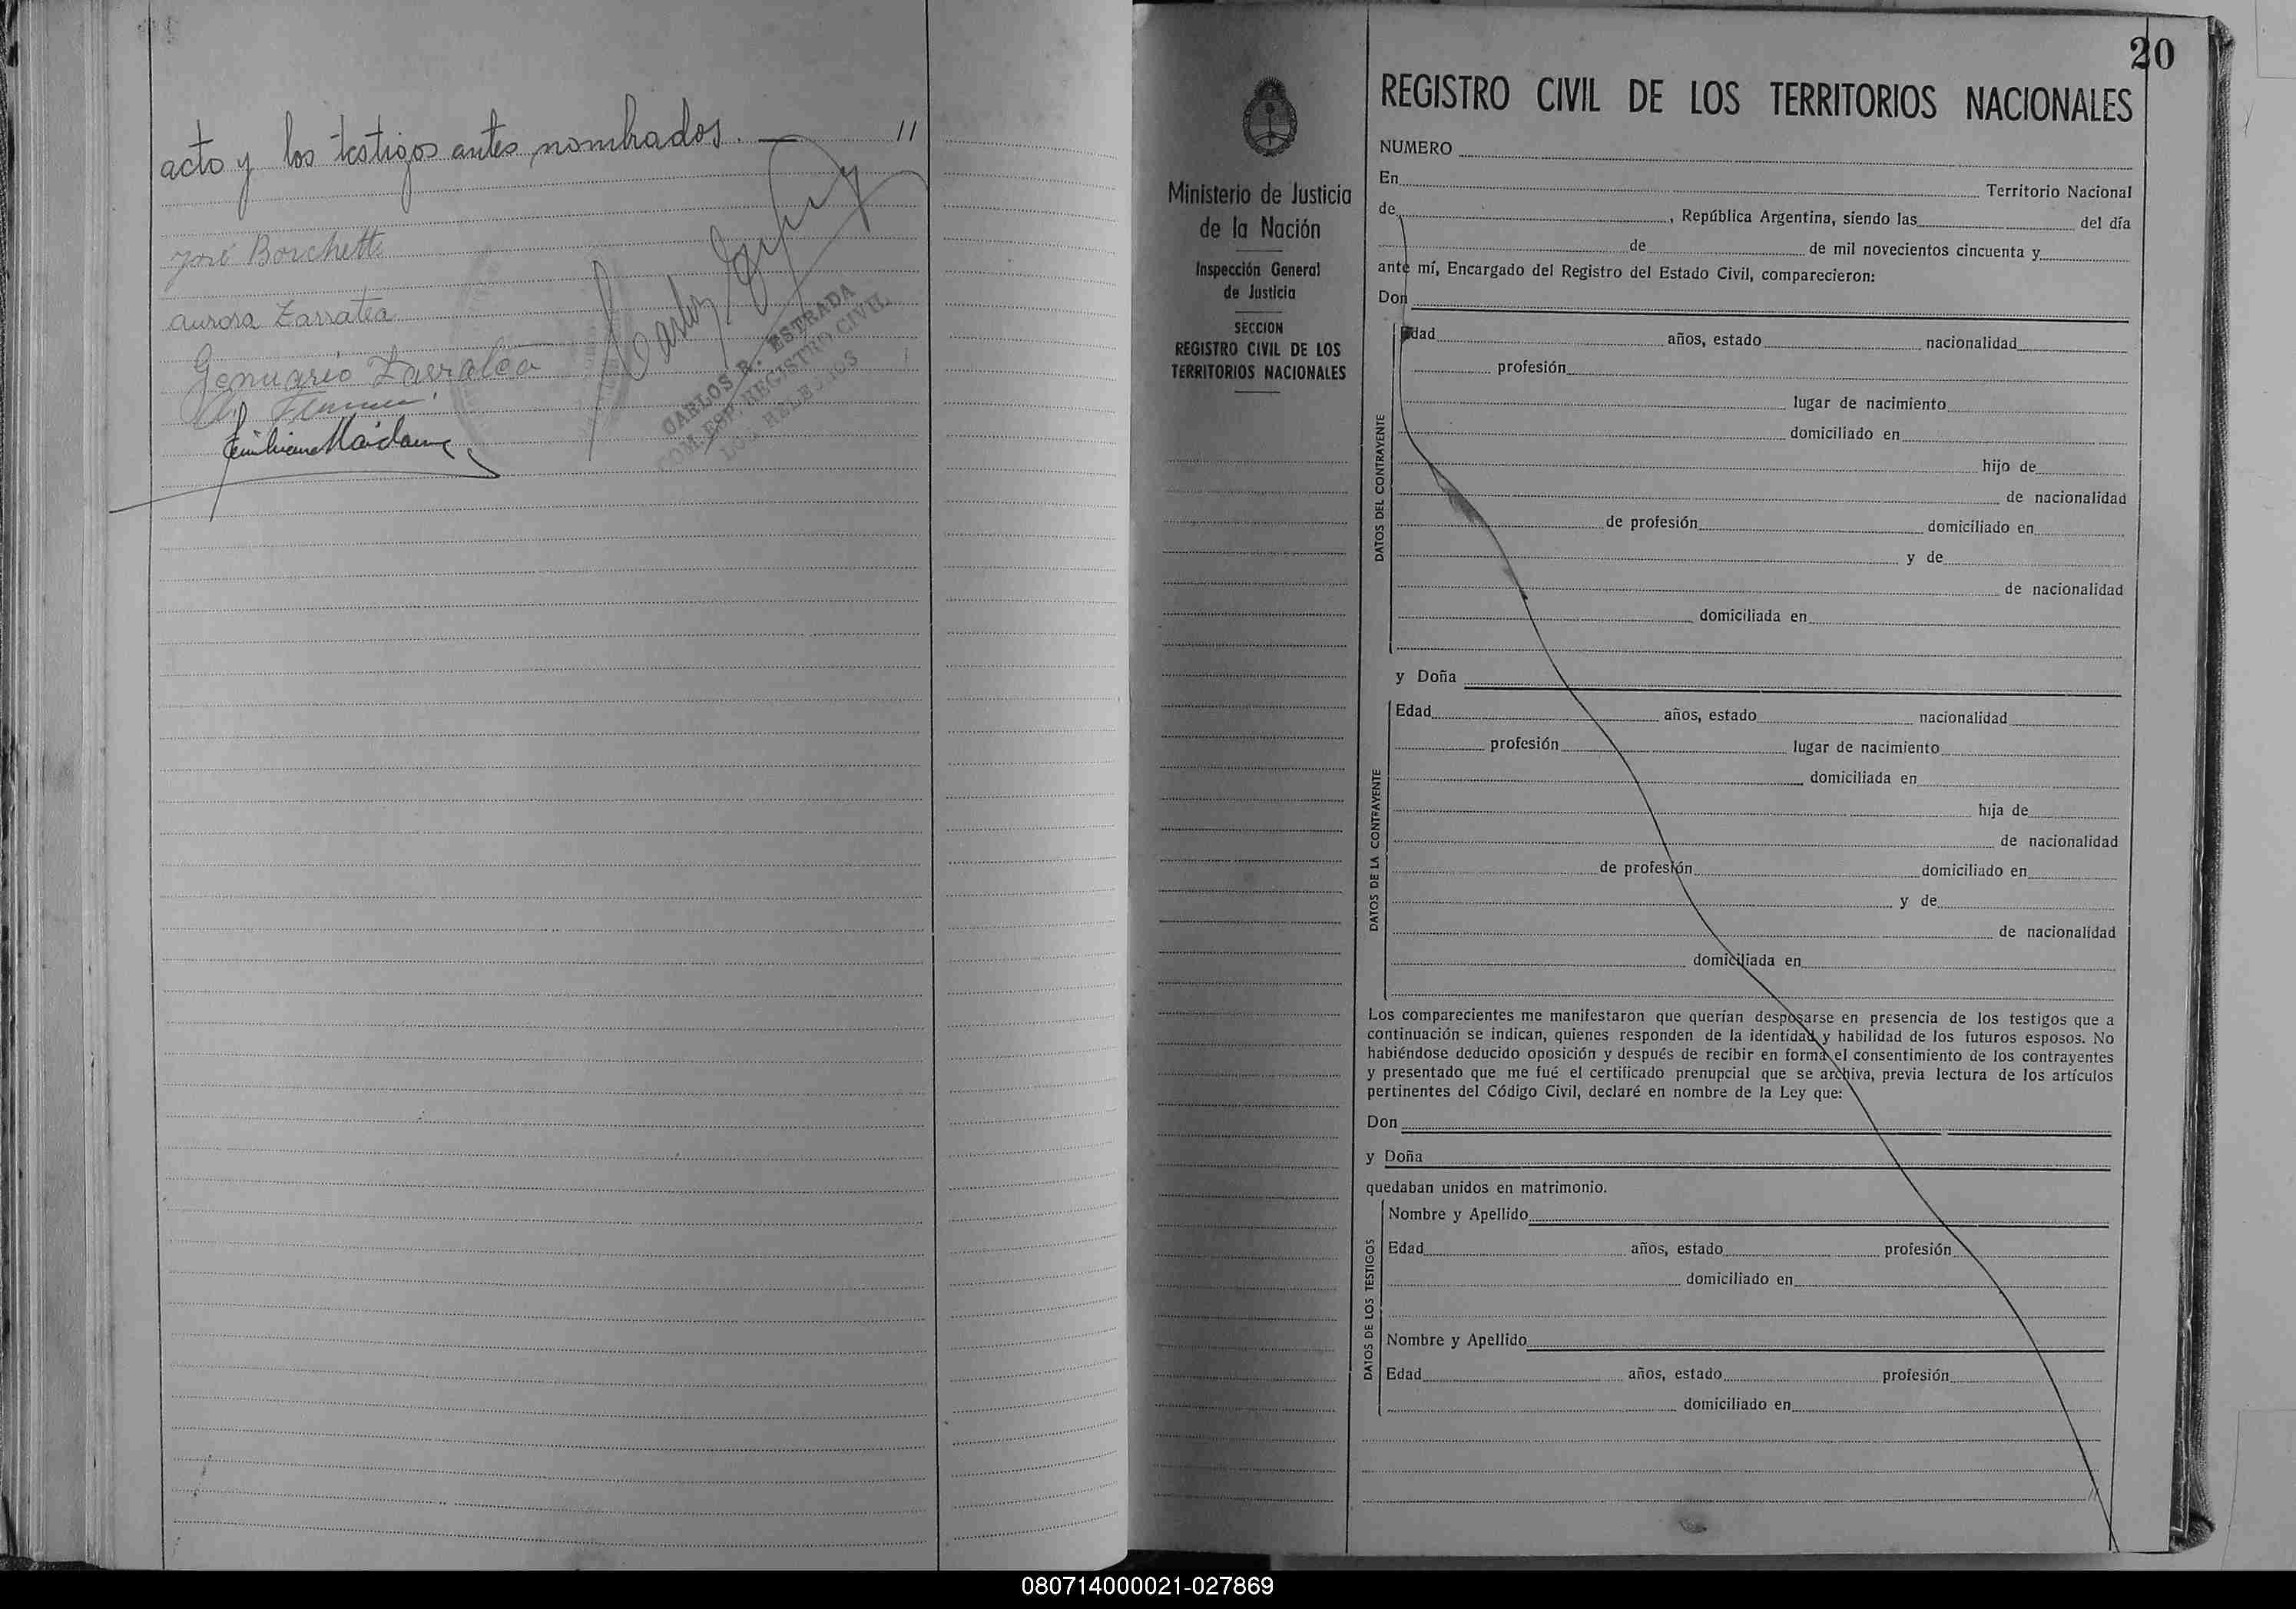 acto y los testigos antes nombrados. — //
José Borchetti
Aurora Zarratea
Genuario Zarratea
Emiliano
CARLOS R. ESTRADA
COM. ESP. REGISTRO CIVIL
LOS HELECHOS
20
Ministerio de Justicia
de la Nación
Inspección General
de Justicia
SECCION
REGISTRO CIVIL DE LOS
TERRITORIOS NACIONALES
REGISTRO CIVIL DE LOS TERRITORIOS NACIONALES
NUMERO
En Territorio Nacional
de , República Argentina, siendo las del día
de de mil novecientos cincuenta y
ante mí, Encargado del Registro del Estado Civil, comparecieron:
Don
DATOS DEL CONTRAYENTE
Edad años, estado nacionalidad
profesión
lugar de nacimiento
domiciliado en
hijo de
de nacionalidad
de profesión domiciliado en
y de
de nacionalidad
domiciliada en
y Doña
DATOS DE LA CONTRAYENTE
Edad años, estado nacionalidad
profesión lugar de nacimiento
domiciliada en
hija de
de nacionalidad
de profesión domiciliado en
y de
de nacionalidad
domiciliada en
Los comparecientes me manifestaron que querían desposarse en presencia de los testigos que a
continuación se indican, quienes responden de la identidad y habilidad de los futuros esposos. No
habiéndose deducido oposición y después de recibir en forma el consentimiento de los contrayentes
y presentado que me fué el certificado prenupcial que se archiva, previa lectura de los artículos
pertinentes del Código Civil, declaré en nombre de la Ley que:
Don
y Doña
quedaban unidos en matrimonio.
DATOS DE LOS TESTIGOS
Nombre y Apellido
Edad años, estado profesión
domiciliado en
Nombre y Apellido
Edad años, estado profesión
domiciliado en
080714000021-027869